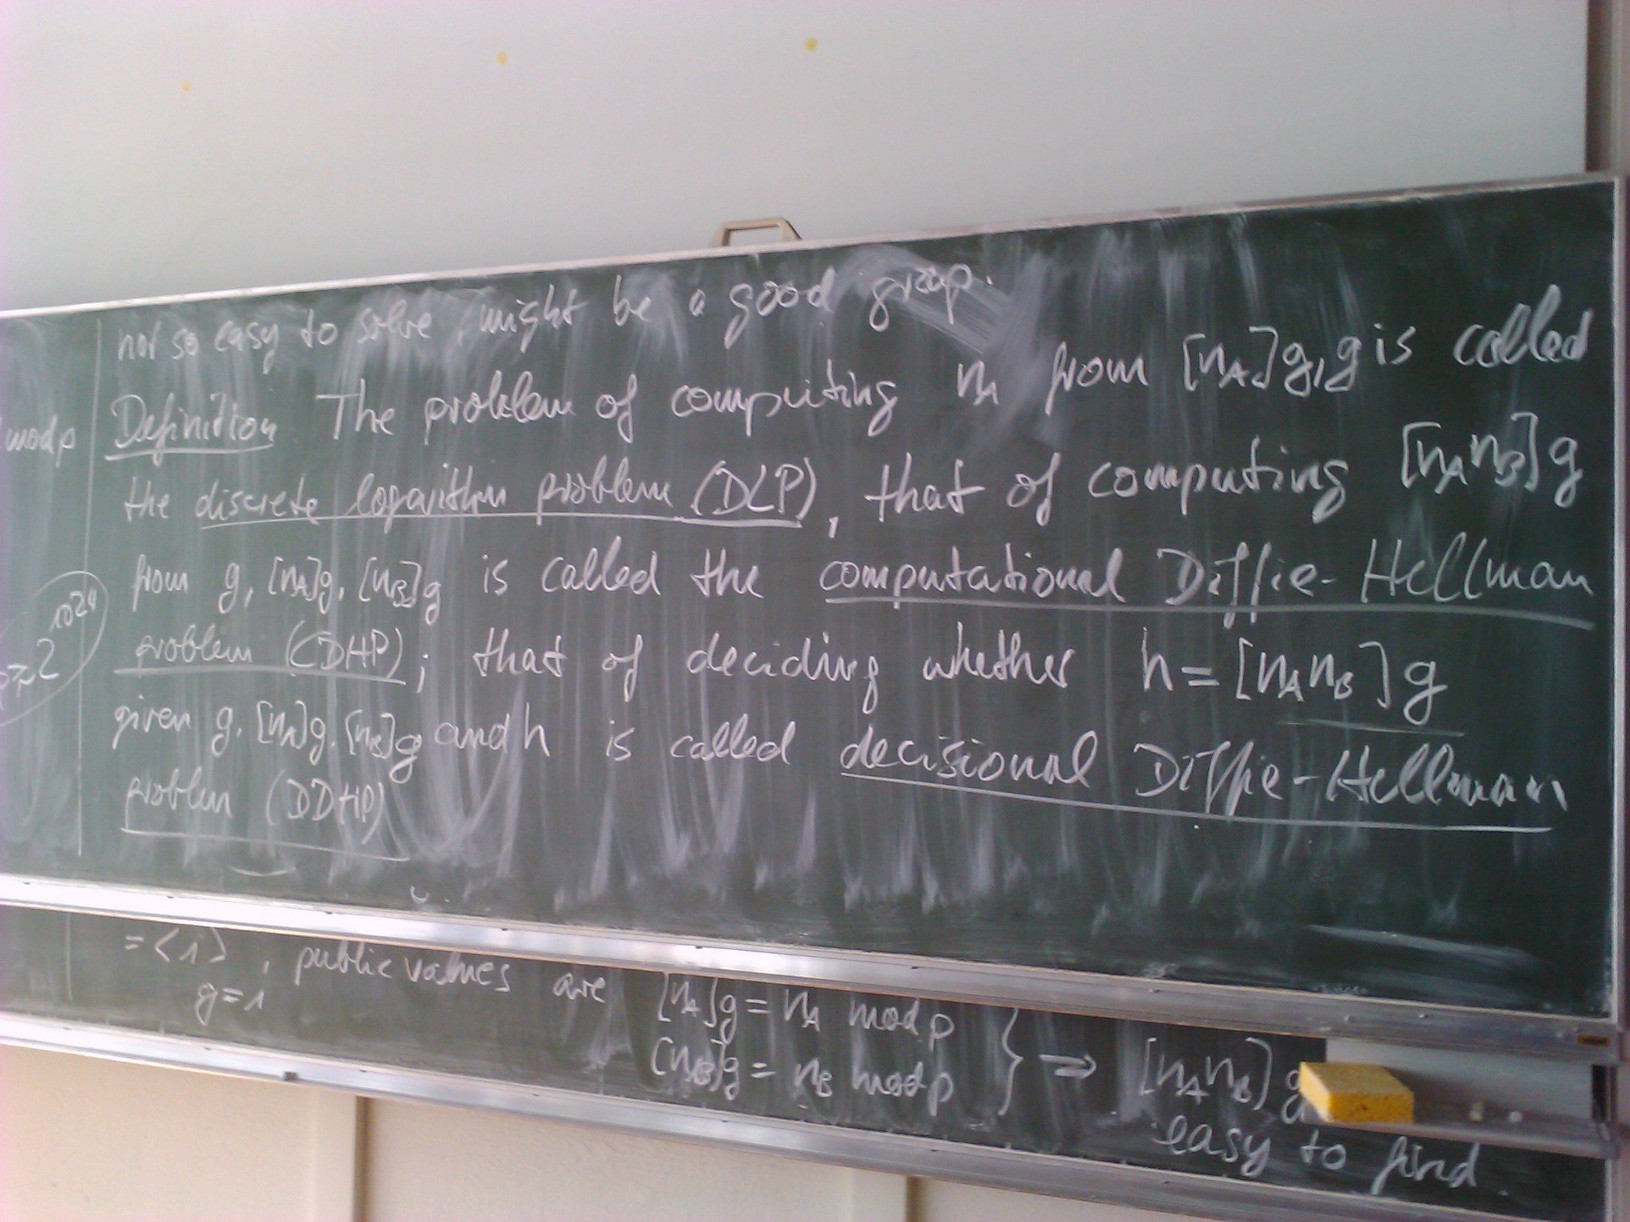 not so easy to solve, might be a good group.
Definition The problem of computing n_A from [n_A]g, g is called
the discrete logarithm problem (DLP), that of computing [n_A n_B]g
from g, [n_A]g, [n_B]g is called the computational Diffie-Hellman
problem (CDHP); that of deciding whether h = [n_A n_B]g
given g, [n_A]g, [n_B]g and h is called decisional Diffie-Hellman
problem (DDHP)
mod p
2^1024
= <1>, public values are [n_A]g = n_A mod p
g = 1
[n_B]g = n_B mod p } ⇒ [n_A n_B] g
easy to find